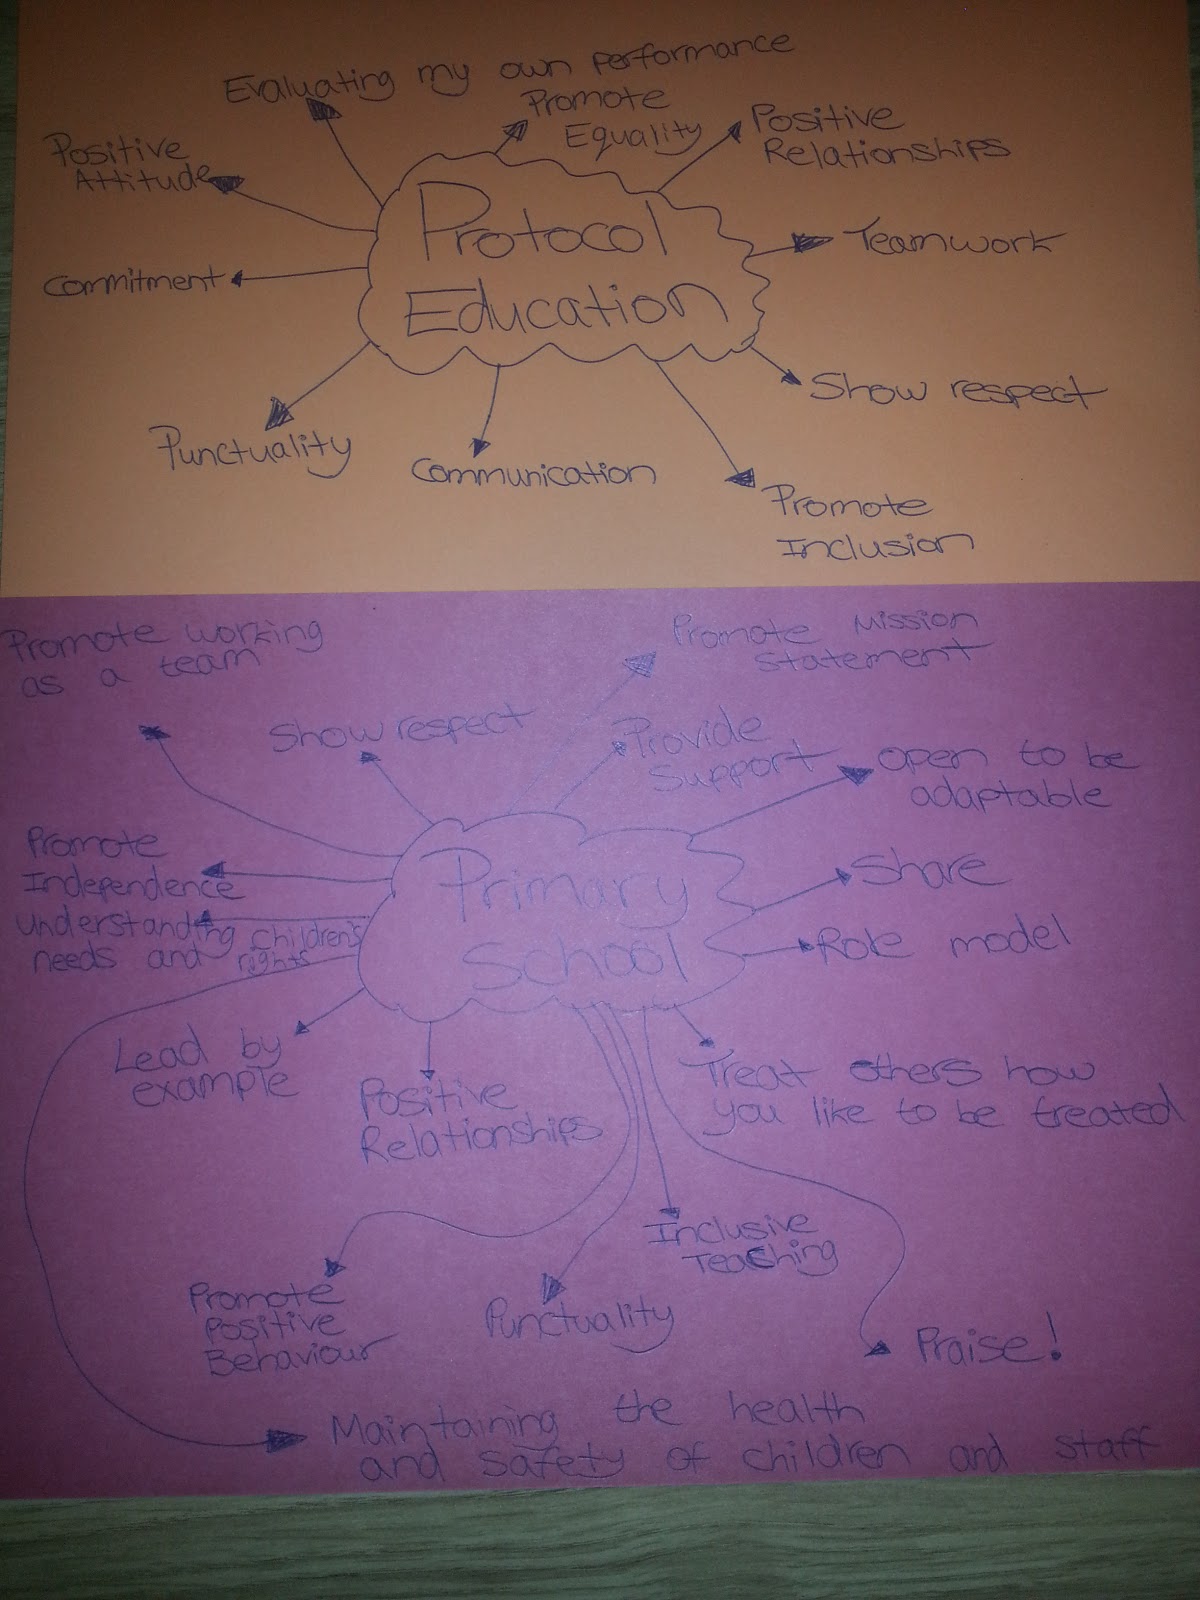 Evaluating my own performance
Promote
Equality
Positive
Relationships
Positive
Attitude
Protocol
Education
Teamwork
Commitment
Show respect
Punctuality
Communication
Promote
Inclusion
Promote working
as a team
Promote Mission
Statement
Show respect
Provide
Support
Open to be
adaptable
Promote
Independence
Primary
School
Share
Understanding children's
needs and rights
Role model
Lead by
example
Positive
Relationships
Treat others how
you like to be treated
Inclusive
Teaching
Promote
Positive
Behaviour
Punctuality
Praise!
Maintaining the health
and safety of children and staff